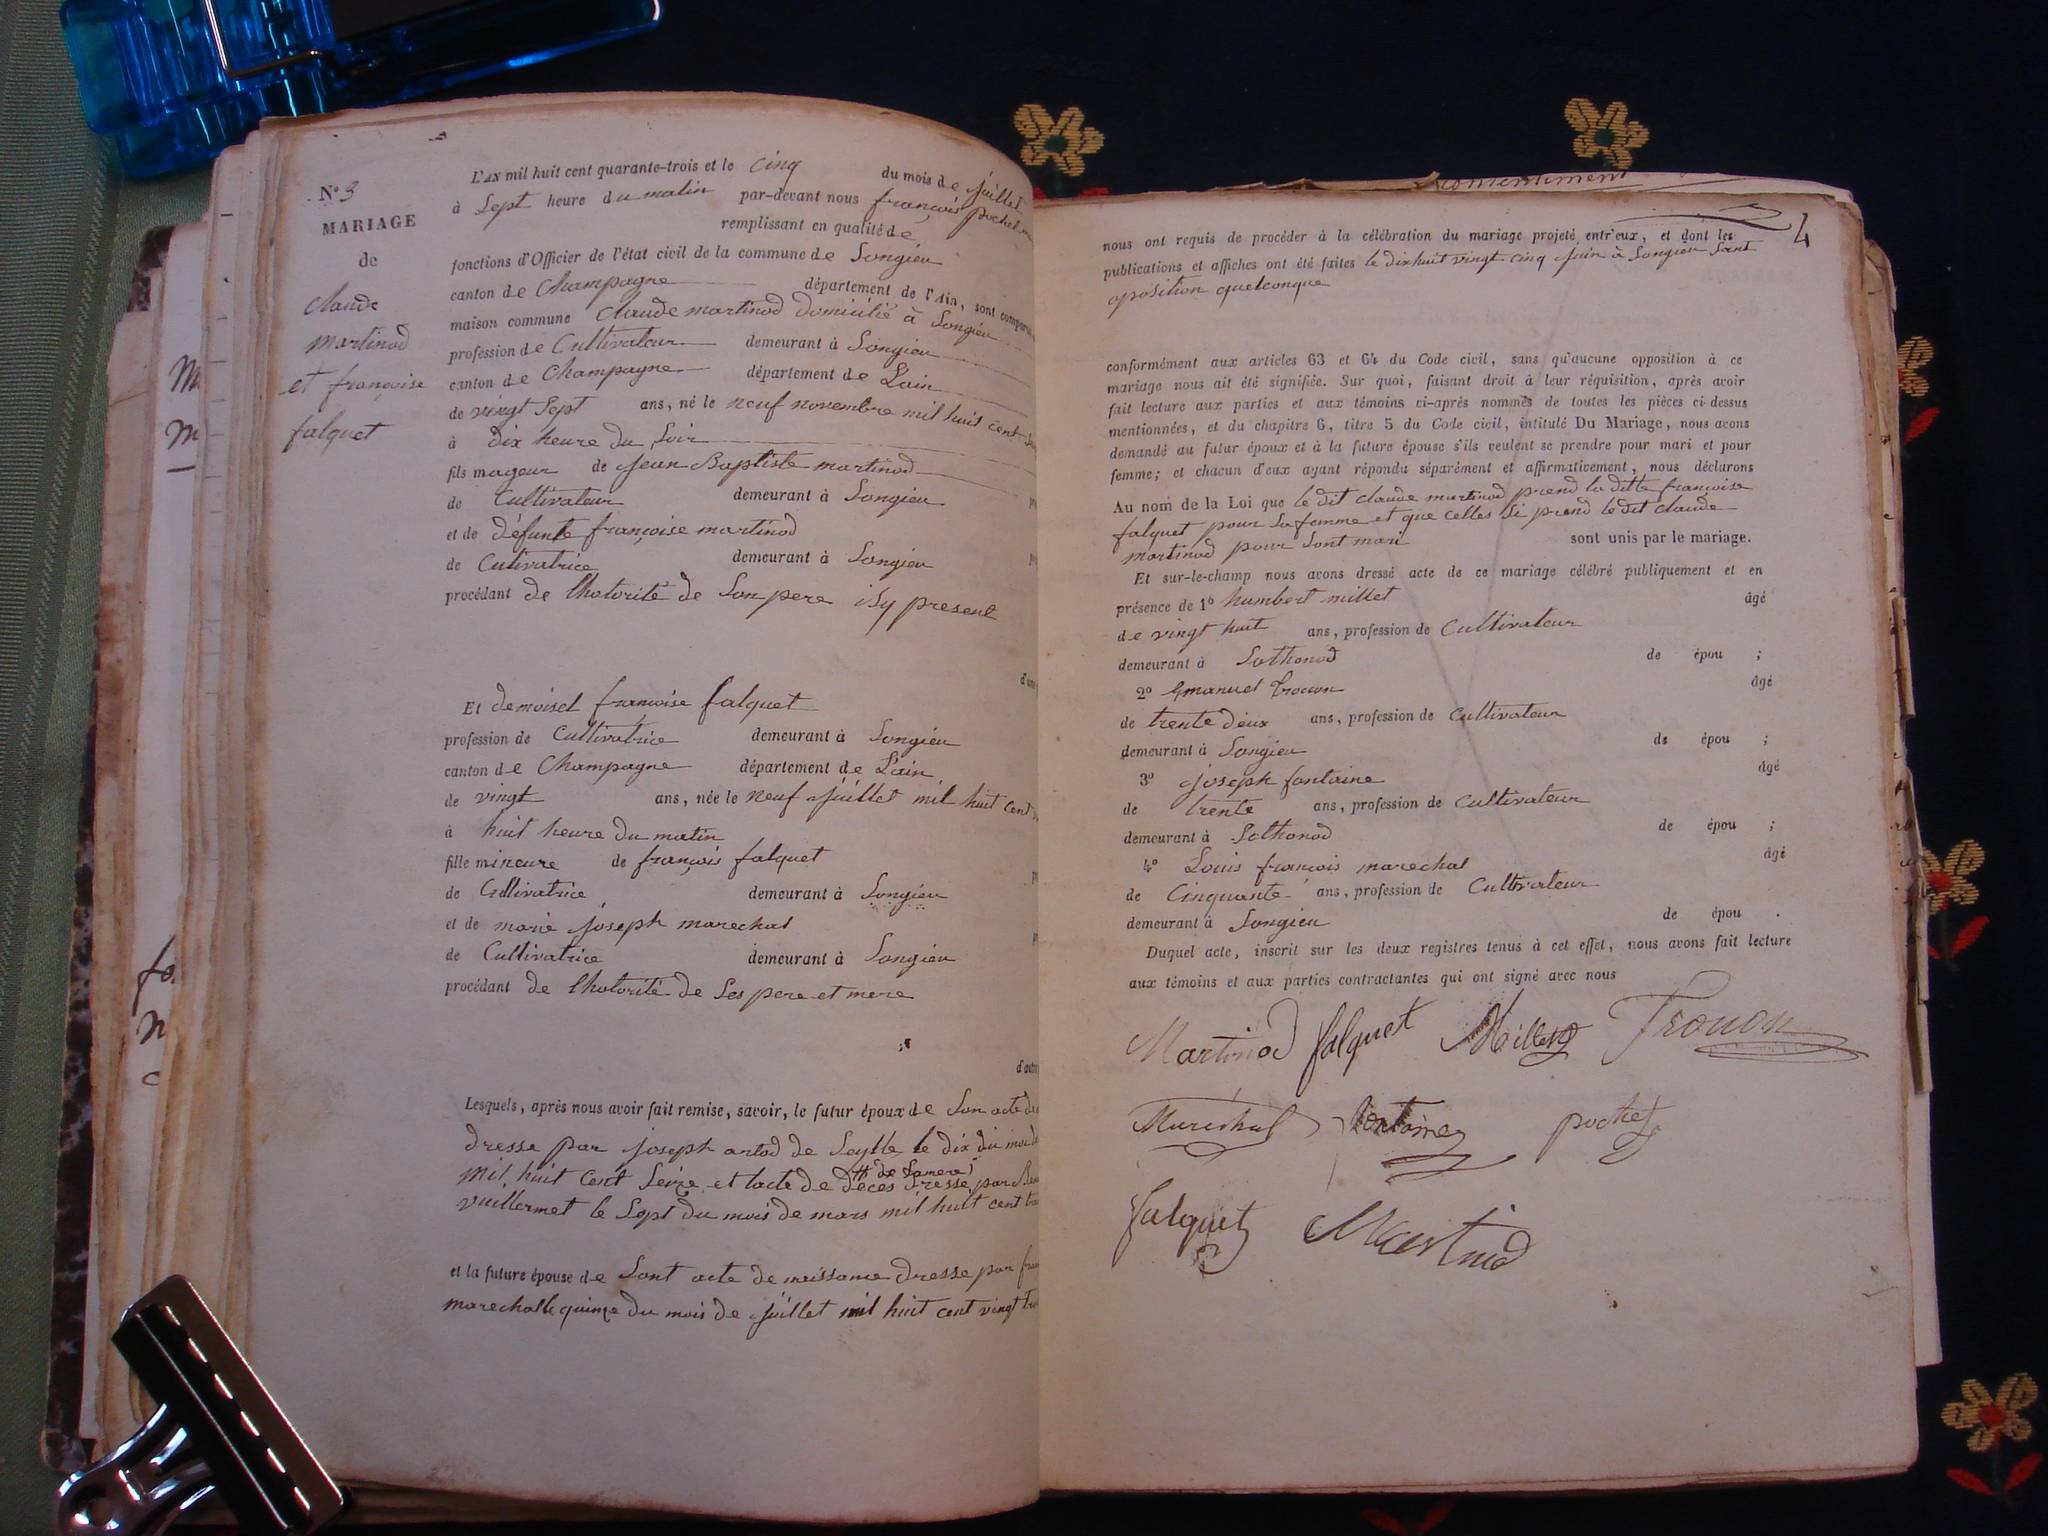 N° 3
MARIAGE
de
claude
martinod
et françoise
falquet
L'AN mil huit cent quarante-trois et le cinq du mois de juillet
à Sept heure du matin par-devant nous françois pochet
remplissant en qualité de
fonctions d'Officier de l'état civil de la commune de Songieu
canton de Champagne département de l'Ain, sont comparu
maison commune claude martinod domicilié à Songieu
profession de Cultivateur demeurant à Songieu
canton de Champagne département de Lain
de vingt Sept ans, né le neuf novembre mil huit cent
à dix heure du Soir
fils mageur de jean Baptiste martinod
de Cultivateur demeurant à Songieu
et de défunte françoise martinod
de Cutivatrice demeurant à Songieu
procédant de lhotorité de Son pere isy present
Et demoisel françoise falquet
profession de Cultivatrice demeurant à Songieu
canton de Champagne département de Lain
de vingt ans, née le neuf juillet mil huit cent
à huit heure du matin
fille mineure de françois falquet
de Cultivatrice demeurant à Songieu
et de marie joseph marechal
de Cultivatrice demeurant à Songieu
procédant de lhotorité de Ses pere et mere
Lesquels, après nous avoir fait remise, savoir, le futur époux de Son acte de
dresse par joseph artod de Seylle le dix du moi
mil huit cent Seize et lacte de déces de Samere dresse par
vuillermet le Sept du mois de mars mil huit cent
et la future épouse de Sont acte de naissance dresse par
marechal le quinze du mois de juillet mil huit cent vingt
consentiment
4
nous ont requis de procéder à la célébration du mariage projeté entr'eux, et dont les
publications et affiches ont été faites le dixhuit vingt cinq juin à Songieu Sant
oposition quelconque
conformément aux articles 63 et 64 du Code civil, sans qu'aucune opposition à ce
mariage nous ait été signifiée. Sur quoi, faisant droit à leur réquisition, après avoir
fait lecture aux parties et aux témoins ci-après nommés de toutes les pièces ci-dessus
mentionnées, et du chapitre 6, titre 5 du Code civil, intitulé Du Mariage, nous avons
demandé au futur époux et à la future épouse s'ils veulent se prendre pour mari et pour
femme; et chacun d'eux ayant répondu séparément et affirmativement, nous déclarons
Au nom de la Loi que le dit claude martinod prend la ditte françoise
falquet pour Sa femme et que celles Si prend le dit claude
martinod pour Sont mari sont unis par le mariage.
Et sur-le-champ nous avons dressé acte de ce mariage célébré publiquement et en
présence de 1° humbert millet âgé
de vingt huit ans, profession de Cultivateur
demeurant à Sothonod de épou ;
2° Emanuel trocon âgé
de trente deux ans, profession de Cultivateur
demeurant à Songieu de épou ;
3° joseph fontaine âgé
de trente ans, profession de Cultivateur
demeurant à Sothonod de épou ;
4° Louis françois marechal âgé
de Cinquante ans, profession de Cultivateur
demeurant à Songieu de épou .
Duquel acte, inscrit sur les deux registres tenus à cet effet, nous avons fait lecture
aux témoins et aux parties contractantes qui ont signé avec nous
Martinod falquet Millet Trocon
Maréchal fontaine pochet
falquet Martinod